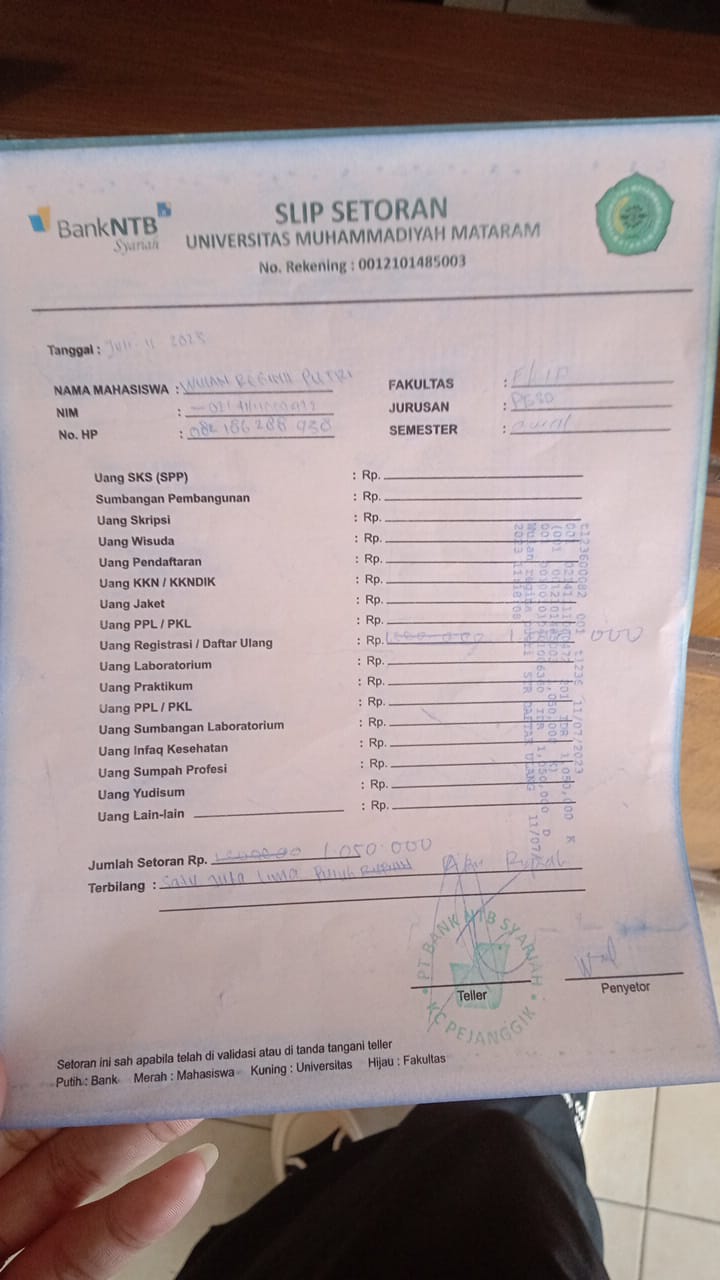 BankNTB
Syariah
SLIP SETORAN
UNIVERSITAS MUHAMMADIYAH MATARAM
No. Rekening : 0012101485003
Tanggal : Juli 11 2023
NAMA MAHASISWA : WULAN REGINA PUTRI
NIM :
No. HP :
FAKULTAS : FKIP
JURUSAN :
SEMESTER : awal
Uang SKS (SPP) : Rp.
Sumbangan Pembangunan : Rp.
Uang Skripsi : Rp.
Uang Wisuda : Rp.
Uang Pendaftaran : Rp.
Uang KKN / KKNDIK : Rp.
Uang Jaket : Rp.
Uang PPL / PKL : Rp.
Uang Registrasi / Daftar Ulang : Rp.
Uang Laboratorium : Rp.
Uang Praktikum : Rp.
Uang PPL / PKL : Rp.
Uang Sumbangan Laboratorium : Rp.
Uang Infaq Kesehatan : Rp.
Uang Sumpah Profesi : Rp.
Uang Yudisum : Rp.
Uang Lain-lain : Rp.
t123600082 001 t1236 11/07/2023
1,050,000 K
Wulan regina putri STR DAFTAR ULANG 11/07/
2023 11:18:08
Jumlah Setoran Rp. 1.050.000
Terbilang : Satu juta lima puluh Rupiah
PT BANK NTB SYARIAH
KC PEJANGGIK
Teller
Penyetor
Setoran ini sah apabila telah di validasi atau di tanda tangani teller
Putih : Bank Merah : Mahasiswa Kuning : Universitas Hijau : Fakultas